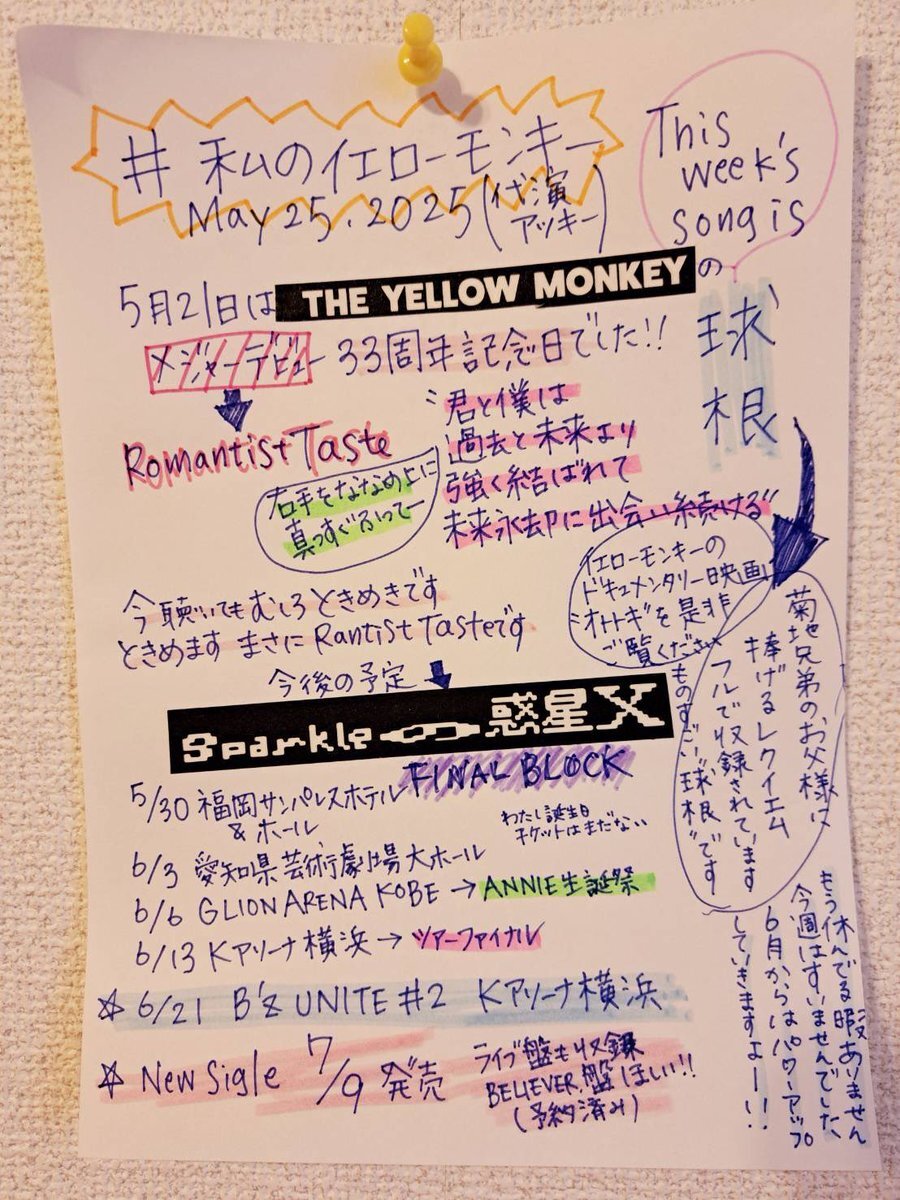 # 私のイエローモンキー
May 25.2025 (代演
アッキー)
This
week's
song is
の
球
根
5月21日は THE YELLOW MONKEY
メジャーデビュー 33周年記念日でした!!
Romantist Taste
右手をななめ上に
真っすぐふってー
"君と僕は
過去と未来より
強く結ばれて
未来永却に出会い続ける"
イエローモンキーの
ドキュメンタリー映画
オトトキを是非
ご覧ください
菊地兄弟のお父様に
捧げるレクイエム
フルで収録されています
ものすごい"球根"です
今聴いてもむしろときめきです
ときめます まさに Rantist Tasteです
今後の予定
Sparkleの惑星X
FINAL BLOCK
5/30 福岡サンパレスホテル
&ホール
わたし誕生日
チケットはまだない
6/3 愛知県芸術劇場大ホール
6/6 GLION ARENA KOBE → ANNIE生誕祭
6/13 Kアリーナ横浜 → ツアーファイナル
☆ 6/21 B'z UNITE #2 Kアリーナ横浜
☆ New Sigle 7/9 発売
ライブ盤も収録
BELIEVER.盤ほしい!!
(予約済み)
もう休んでる暇ありません
今週はすいませんでした、
6月からはパワーアップ
していきますよー!!